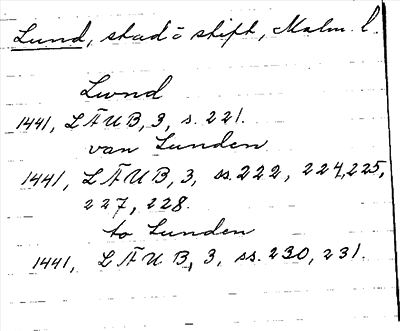 Lund, stad o stift, Malm. l.
Lwnd
1441, LÄUB, 3, s. 221.
van Lunden
1441, LÄUB, 3, ss. 222, 224, 225,
227, 228.
to Lunden
1441, LÄUB, 3, ss. 230, 231.